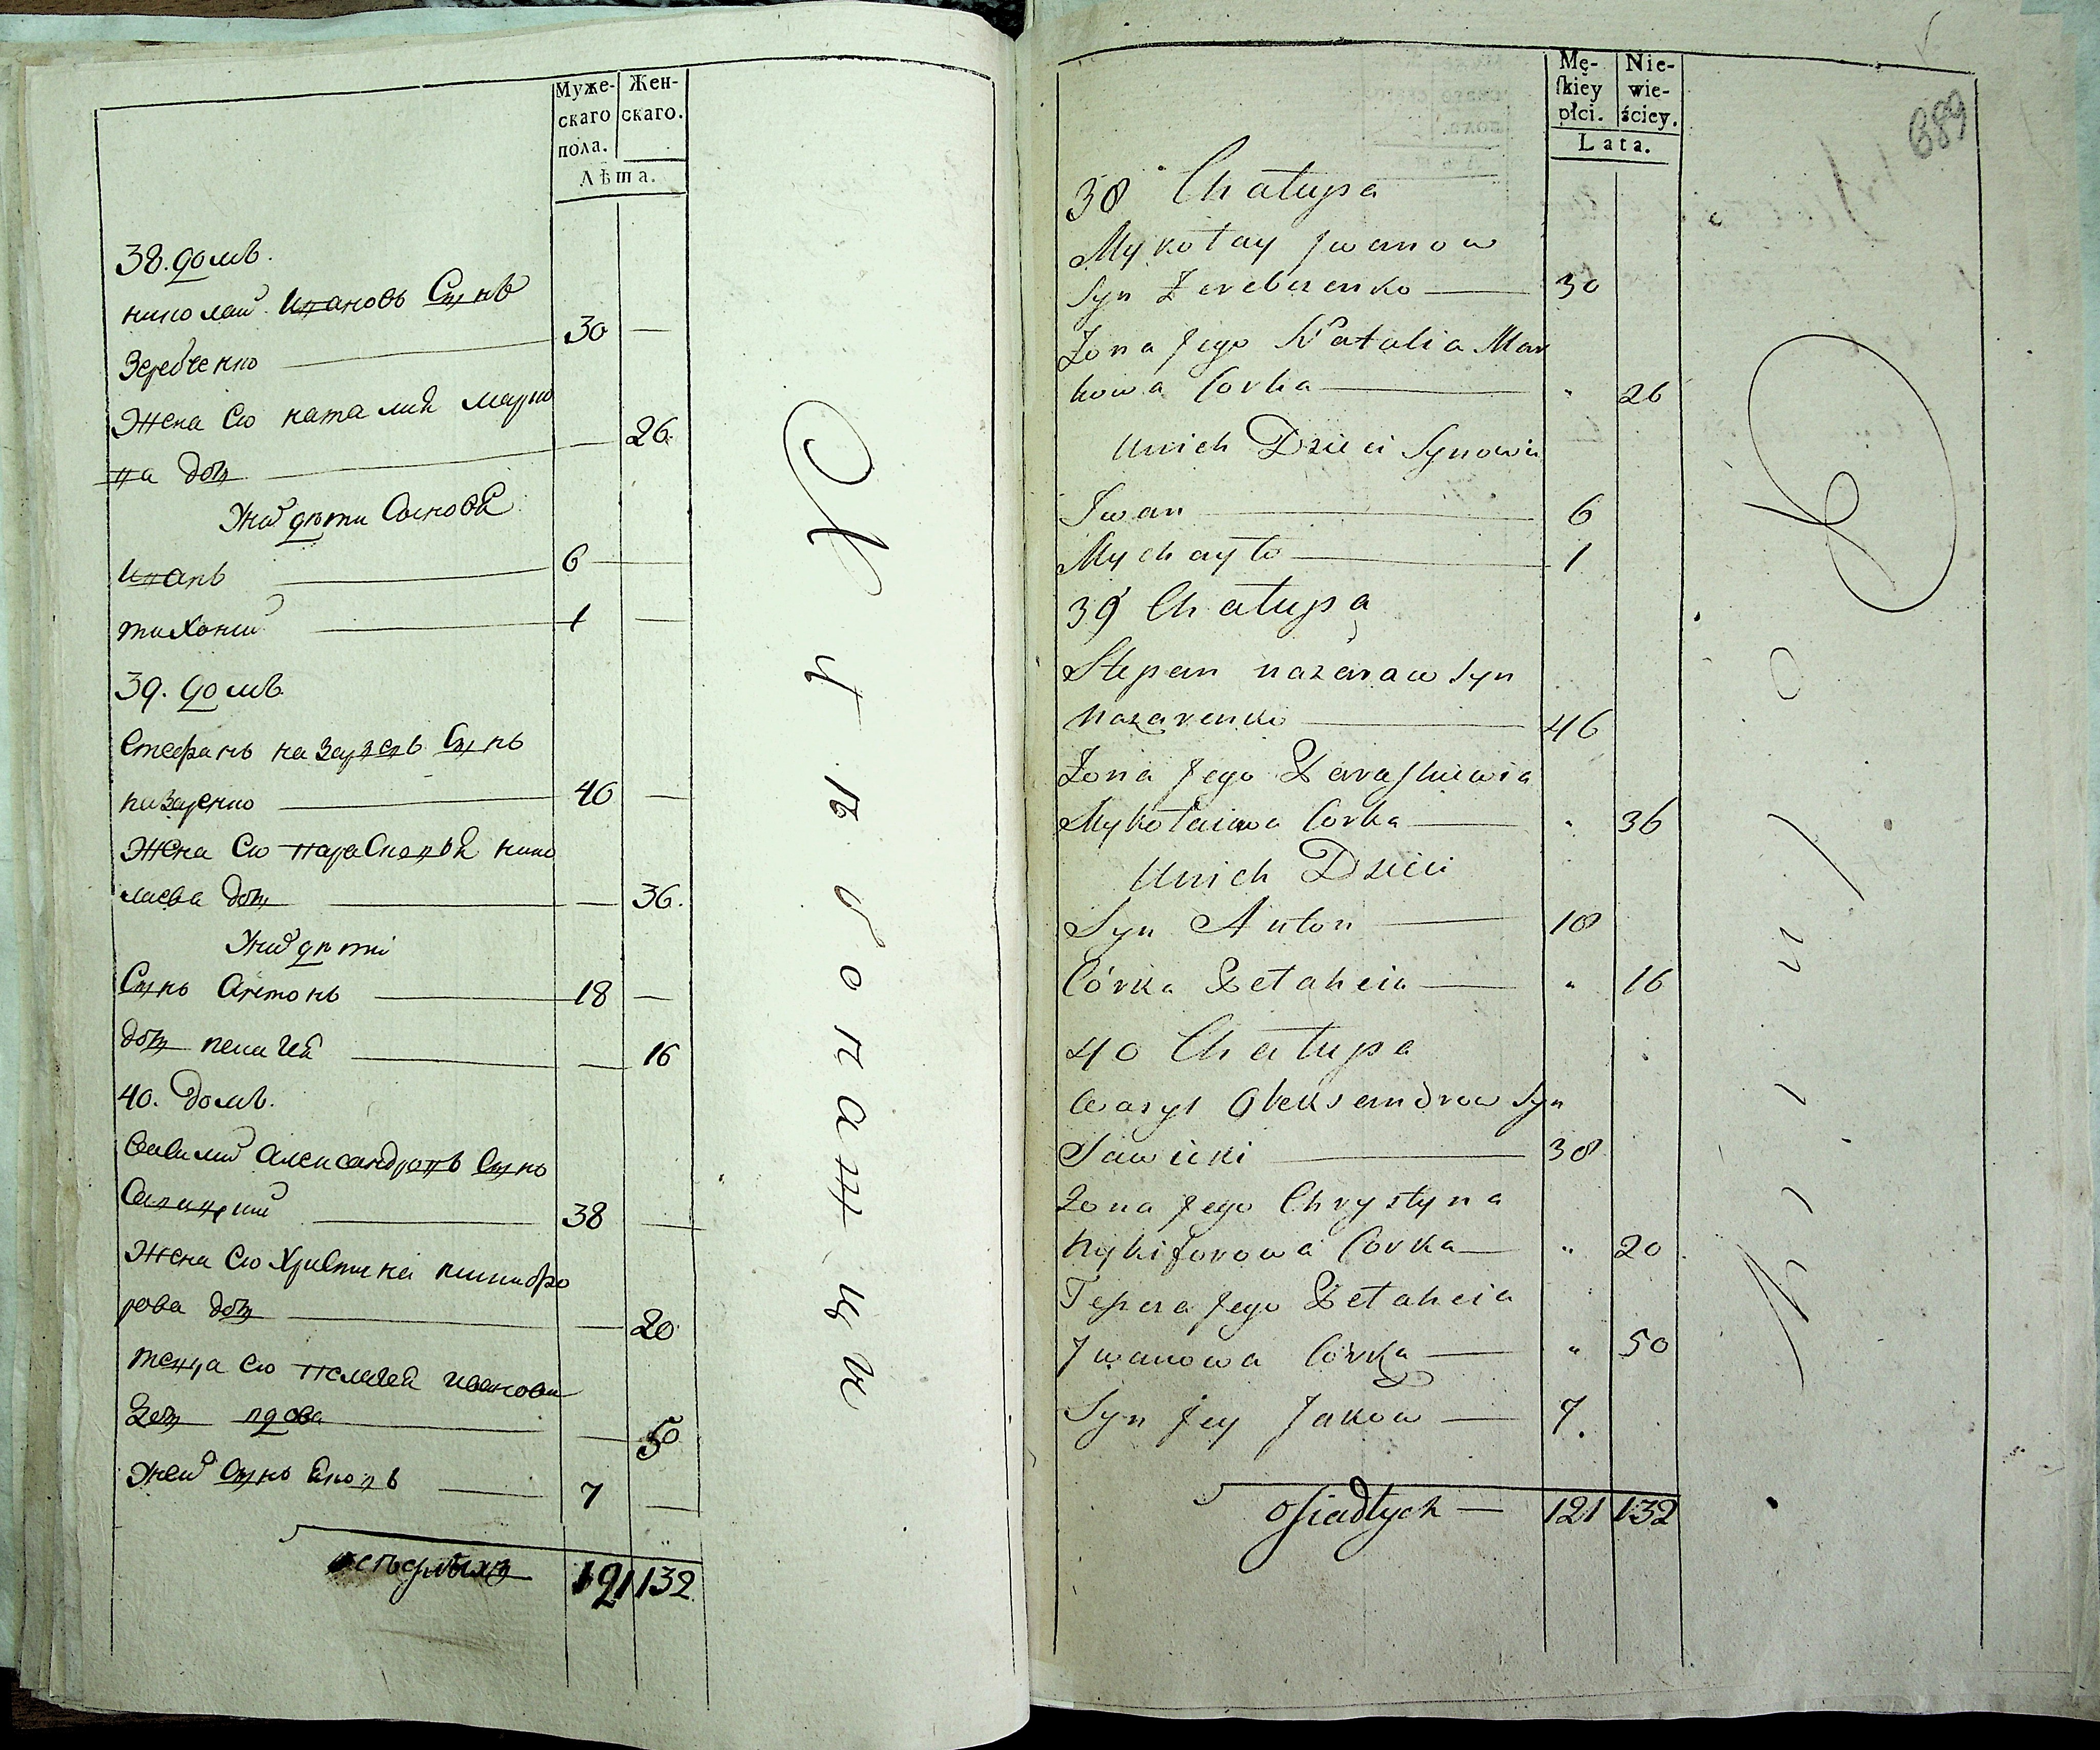 Муже-
скаго
пола.
Жен-
скаго.
Лѣта.
38. домъ.
николай Ивановъ Сынъ
Зеребченко 30
Жена Его наталия Марко
ва доч 26.
Уних дѣти Сыновя
Иванъ 6
михайло 1
39. домъ
Стефанъ назаревъ Сынъ
назаренко 46
Жена Его парасковея нико
лаева доч 36.
Уних дѣти
Сынъ Антонъ 18
доч пелагея 16
40. домъ.
Василий Александровъ Сынъ
Савицкий 38
Жена Его Христина никифо
рова доч 20
теща Его пелагея иванова
доч вдова 50
Уней Сынъ Яковъ 7
осѣдлыхъ 121 132
Мę-
skiey
płci.
Nie-
wie-
ściey.
Lata.
689
38 Chałupa
Mykołay Jwanow
Syn Zerebczenko 30
Żona Jego Natalia Mar
kowa Corka " 26
Unich Dzieci Synowie
Iwan 6
Mychayło 1
39 Chałupa
Stepan nazarow Syn
Nazarenko 46
Żona Jego Paraskiewia
Mykołaiowa Corka " 36
Unich Dzieci
Syn Anton 18
Córka Pełaheia " 16
40 Chałupa
Wasyl Oleksandrow Syn
Sawicki 38
Żona Jego Chrystyna
Nykiforowa Corka " 20
Teszcza Jego Pełaheia
Jwanowa Córka " 50
Syn Jey Jakow 7.
osiadłych 121 132